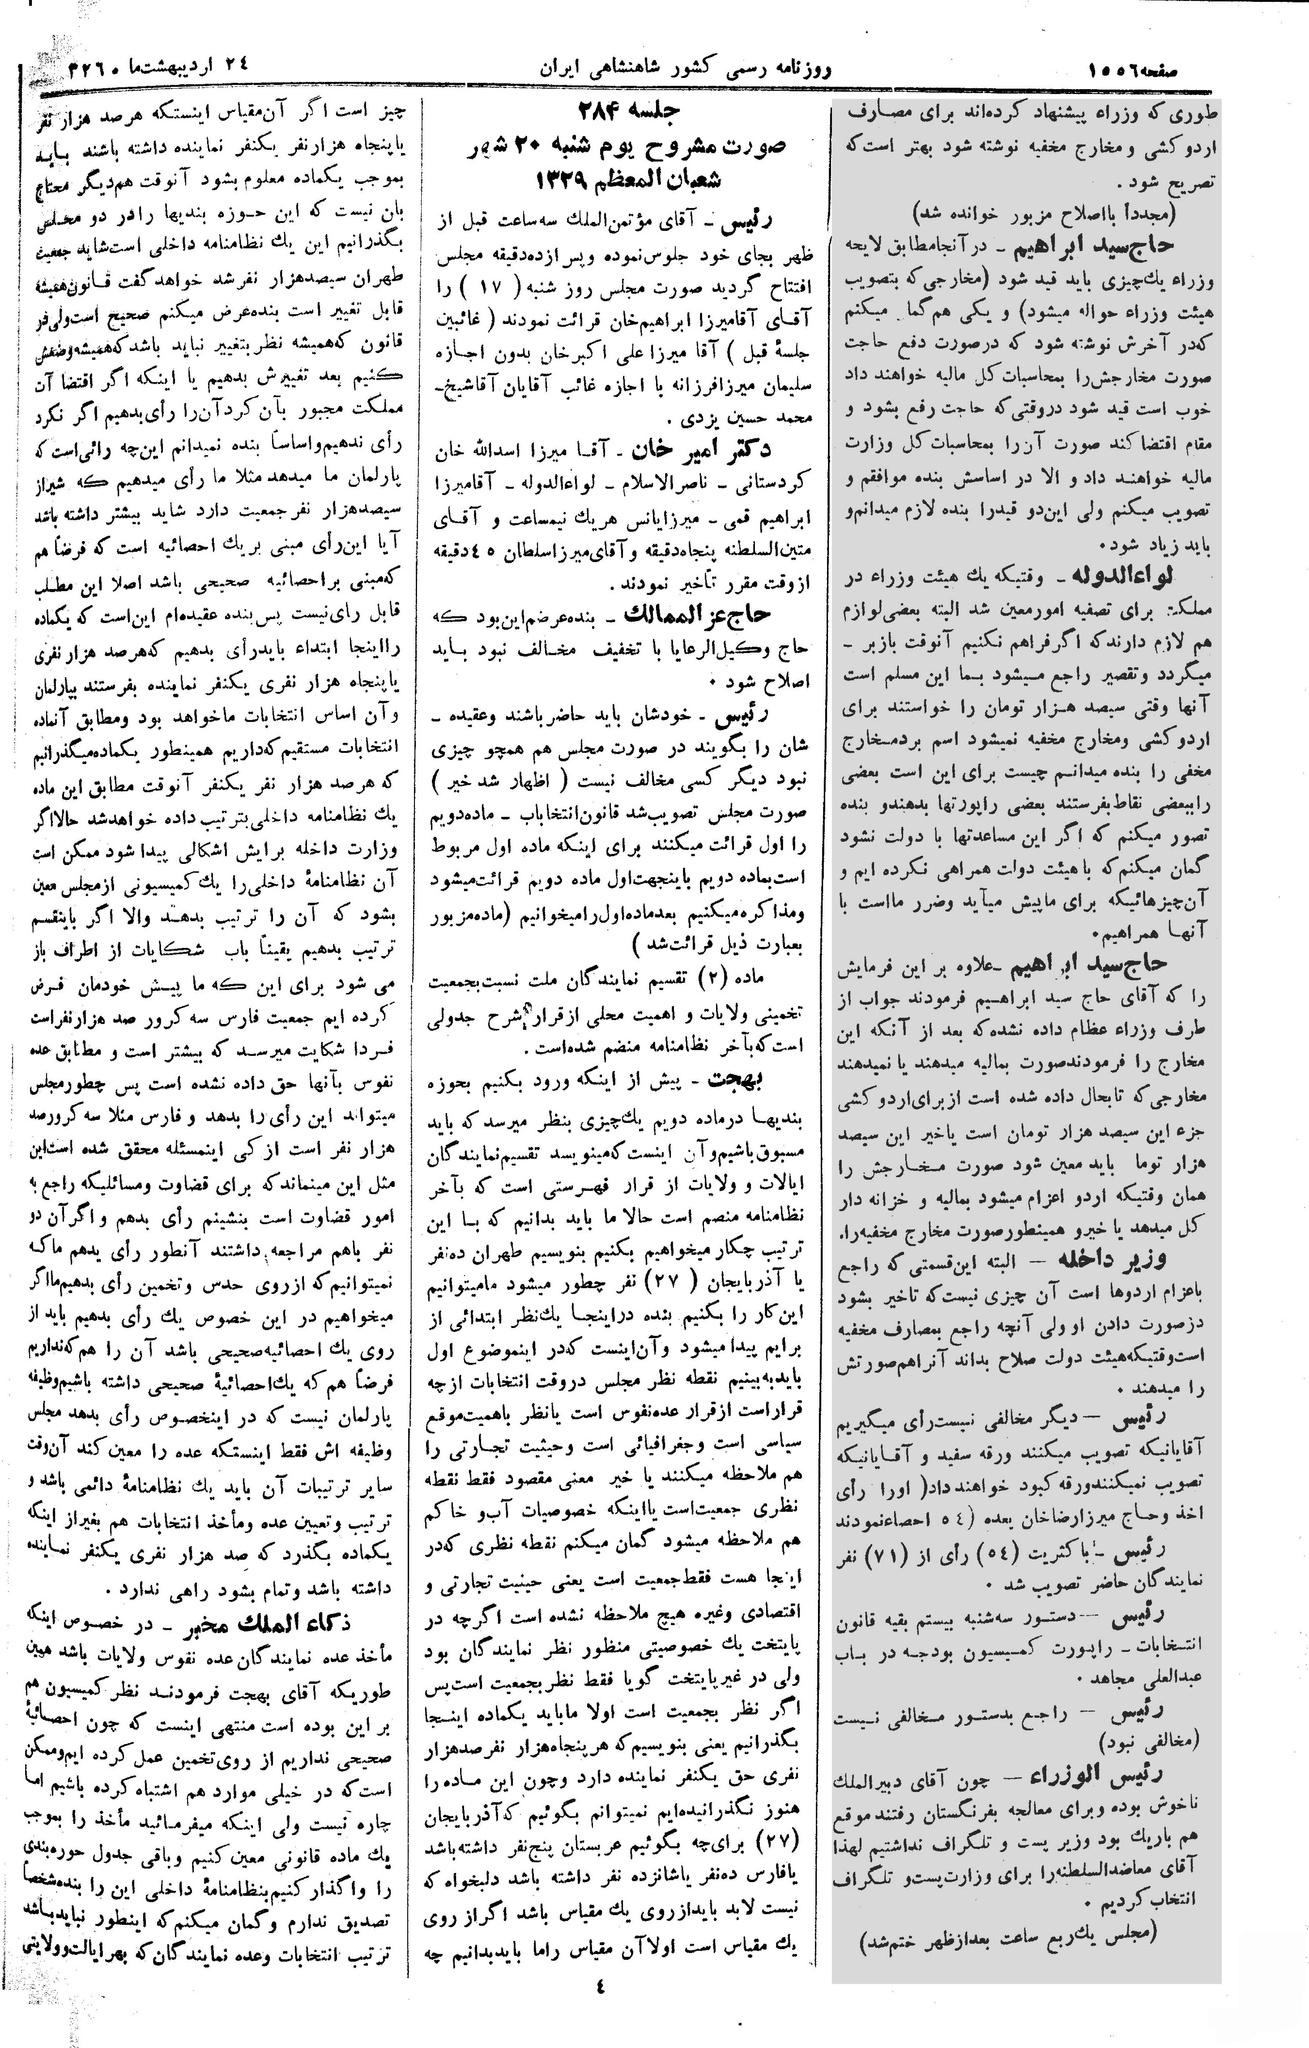 صفحه ۱۵۵۶
روزنامه رسمی کشور شاهنشاهی ایران
۲۴ اردیبهشت‌ما
طوری که وزراء پیشنهاد کرده‌اند برای مصارف
اردو کشی و مخارج مخفیه نوشته شود بهتر است که
تصریح شود .
(مجدداً بااصلاح مزبور خوانده شد)
حاج سید ابراهیم – در آنجا مطابق لایحه
وزراء یك چیزی باید قید شود (مخارجی که بتصویب
هیئت وزراء حواله میشود) و یکی هم گما میکنم
که در آخرش نوشته شود که درصورت دفع حاجت
صورت مخارجش را بمحاسبات کل مالیه خواهند داد
خوب است قید شود دروقتی که حاجت رفع بشود و
مقام اقتضا کند صورت آن را بمحاسبات کل وزارت
مالیه خواهند داد و الا در اساسش بنده موافقم و
تصویب میکنم ولی این دو قید را بنده لازم میدانم و
باید زیاد شود .
لواءالدوله – وقتیکه یك هیئت وزراء در
مملکت برای تصفیه امور معین شد البته بعضی لوازم
هم لازم دارند که اگر فراهم نکنیم آنوقت بازبر –
میگردد و تقصیر راجع میشود بما این مسلم است
آنها وقتی سیصد هزار تومان را خواستند برای
اردو کشی ومخارج مخفیه نمیشود اسم برد مخارج
مخفی را بنده میدانم چیست برای این است بعضی
راببعضی نقاط بفرستند بعضی راپورتها بدهند و بنده
تصور میکنم که اگر این مساعدتها با دولت نشود
گمان میکنم که با هیئت دولت همراهی نکرده ایم و
آن چیزهائیکه برای ما پیش میآید وضرر مااست با
آنها همراهیم .
حاج سید ابراهیم – علاوه بر این فرمایش
را که آقای حاج سید ابراهیم فرمودند جواب از
طرف وزراء عظام داده نشده که بعد از آنکه این
مخارج را فرمودند صورت بمالیه میدهند یا نمیدهند
مخارجی که تابحال داده شده است از برای اردو کشی
جزء این سیصد هزار تومان است یا خیر این سیصد
هزار توما باید معین شود صورت مخارجش را
همان وقتیکه اردو اعزام میشود بمالیه و خزانه دار
کل میدهد یا خیر و همینطور صورت مخارج مخفیه را.
وزیر داخله – البته این قسمتی که راجع
باعزام اردوها است آن چیزی نیست که تاخیر بشود
درصورت دادن او ولی آنچه راجع بمصارف مخفیه
است وقتیکه هیئت دولت صلاح بداند آنراهم صورتش
را میدهند .
رئیس – دیگر مخالفی نیست رأی میگیریم
آقایانیکه تصویب میکنند ورقه سفید و آقایانیکه
تصویب نمیکنند ورقه کبود خواهند داد( اورا رأی
اخذ و حاج میرزا رضاخان بعده (۵۴ احصاء نمودند
رئیس – باکثریت (۵۴) رأی از (۷۱) نفر
نمایندگان حاضر تصویب شد .
رئیس – دستور سه‌شنبه بیستم بقیه قانون
انتخابات – راپورت کمیسیون بودجه در باب
عبدالعلی مجاهد .
رئیس – راجع بدستور مخالفی نیست
(مخالفی نبود)
رئیس الوزراء – چون آقای دبیرالملك
ناخوش بوده و برای معالجه بفرنگستان رفتند موقع
هم باریك بود وزیر پست و تلگراف نداشتیم لهذا
آقای معاضدالسلطنه را برای وزارت پست و تلگراف
انتخاب کردیم .
(مجلس یك ربع ساعت بعد از ظهر ختم شد)
جلسه ۲۸۴
صورت مشروح یوم شنبه ۲۰ شهر
شعبان المعظم ۱۳۲۹
رئیس – آقای مؤتمن الملك سه ساعت قبل از
ظهر بجای خود جلوس نموده و پس از ده دقیقه مجلس
افتتاح گردید صورت مجلس روز شنبه ( ۱۷ ) را
آقای آقامیرزا ابراهیم خان قرائت نمودند ( غائبین
جلسهٔ قبل ) آقا میرزا علی اکبر خان بدون اجازه
سلیمان میرزا فرزانه با اجازه غائب آقایان آقا شیخ–
محمد حسین یزدی .
دکتر امیر خان – آقا میرزا اسدالله خان
کردستانی – ناصر الاسلام – لواءالدوله – آقامیرزا
ابراهیم قمی – میرزایانس هریك نیمساعت و آقای
متین السلطنه پنجاه دقیقه و آقای میرزا سلطان ۴۵ دقیقه
از وقت مقرر تأخیر نمودند .
حاج عز الممالك – بنده عرضم این بود که
حاج وکیل الرعایا با تخفیف مخالف نبود باید
اصلاح شود .
رئیس – خودشان باید حاضر باشند و عقیده –
شان را بگویند در صورت مجلس هم همچو چیزی
نبود دیگر کسی مخالف نیست ( اظهار شد خیر )
صورت مجلس تصویب شد قانون انتخاباب – ماده دویم
را اول قرائت میکنند برای اینکه ماده اول مربوط
است بماده دویم باینجهت اول ماده دویم قرائت میشود
ومذاکره میکنیم بعد ماده اول رامیخوانیم (ماده مزبور
بعبارت ذیل قرائت شد )
ماده (۲) تقسیم نمایندگان ملت نسبت بجمعیت
تخمینی ولایات و اهمیت محلی از قرار شرح جدولی
است که بآخر نظامنامه منضم شده است .
بهجت – پیش از اینکه ورود بکنیم بحوزه
بندیها در ماده دویم یك چیزی بنظر میرسد که باید
مسبوق باشیم و آن اینست که مینویسد تقسیم نمایندگان
ایالات و ولایات از قرار فهرستی است که بآخر
نظامنامه منصم است حالا ما باید بدانیم که با این
ترتیب چکار میخواهیم بکنیم بنویسیم طهران ده نفر
یا آذربایجان ( ۲۷) نفر چطور میشود مامیتوانیم
این کار را بکنیم بنده دراینجا یك نظر ابتدائی از
برایم پیدا میشود و آن اینست که در اینموضوع اول
باید به بینیم نقطه نظر مجلس دروقت انتخابات از چه
قرار است از قرار عده نفوس است یا نظر باهمیت موقع
سیاسی است و جغرافیائی است و حیثیت تجارتی را
هم ملاحظه میکنند یا خیر معنی مقصود فقط نقطه
نظری جمعیت است یا اینکه خصوصیات آب و خاکم
هم ملاحظه میشود گمان میکنم نقطه نظری که در
اینجا هست فقط جمعیت است یعنی حینیت تجارتی و
اقتصادی وغیره هیچ ملاحظه نشده است اگرچه در
پایتخت یك خصوصیتی منظور نظر نمایندگان بود
ولی در غیر پایتخت گویا فقط نظر بجمعیت است پس
اگر نظر بجمعیت است اولا ما باید یکماده اینجا
بگذرانیم یعنی بنویسیم که هر پنجاه هزار نفر صد هزار
نفری حق یکنفر نماینده دارد و چون این ماده را
هنوز نگذرانیده‌ایم نمیتوانم بگوئیم که آذربایجان
(۲۷) برای چه بگوئیم عربستان پنج نفر داشته باشد
یا فارس ده نفر یا شانزده نفر داشته باشد دلبخواه که
نیست لابد باید از روی یك مقیاس باشد اگر از روی
یك مقیاس است اولا آن مقیاس راما باید بدانیم چه
چیز است اگر آن مقیاس اینستکه هرصد هزار نفر
یا پنجاه هزار نفر یکنفر نماینده داشته باشند باید
بموجب یکماده معلوم بشود آنوقت هم دیگر محتاج
بان نیست که این حوزه بندیها را در دو مجلس
بگذرانیم این یك نظامنامه داخلی است شاید جمعیت
طهران سیصد هزار نفر شد خواهد گفت قانون همیشه
قابل تغییر است بنده عرض میکنم صحیح است ولی در
قانون که همیشه نظر بتغییر نباید باشد که همیشه وضعش
کنیم بعد تغییرش بدهیم یا اینکه اگر اقتضا آن
مملکت مجبور بآن کرد آن را رأی بدهیم اگر نکرد
رأی ندهیم واساساً بنده نمیدانم این چه رائی است که
پارلمان ما میدهد مثلا ما رأی میدهیم که شیراز
سیصد هزار نفر جمعیت دارد شاید بیشتر داشته باشد
آیا این رأی مبنی بریك احصائیه است که فرضاً هم
که مبنی براحصائیه صحیحی باشد اصلا این مطلب
قابل رای نیست پس بنده عقیده‌ام این است که یکماده
رااینجا ابتداء باید رأی بدهیم که هرصد هزار نفری
یا پنجاه هزار نفری یکنفر نماینده بفرستند بپارلمان
و آن اساس انتخابات ماخواهد بود ومطابق آنماده
انتخابات مستقیم که داریم همینطور یکماده میگذرانیم
که هرصد هزار نفر یکنفر آنوقت مطابق این ماده
یك نظامنامه داخلی بترتیب داده خواهد شد حالا اگر
وزارت داخله برایش اشکالی پیدا شود ممکن است
آن نظامنامهٔ داخلی را یك کمیسیونی از مجلس معین
بشود که آن را ترتیب بدهد والا اگر باینقسم
ترتیب بدهیم یقیناً باب شکایات از اطراف باز
می شود برای این که ما پیش خودمان فرض
کرده ایم جمعیت فارس سه کرور صد هزار نفر است
فردا شکایت میرسد که بیشتر است و مطابق عده
نفوس بآنها حق داده نشده است پس چطور مجلس
میتواند این رأی را بدهد و فارس مثلا سه کرور صد
هزار نفر است از کی اینمسئله محقق شده است این
مثل این میماند که برای قضاوت ومسائلیکه راجع به
امور قضاوت است بنشینم رأی بدهم و اگر آن دو
نفر باهم مراجعه داشتند آنطور رأی بدهم ما که
نمیتوانیم که از روی حدس و تخمین رأی بدهیم ما اگر
میخواهیم در این خصوص یك رأی بدهیم باید از
روی یك احصائیه صحیحی باشد آن را هم که نداریم
فرضاً هم که یك احصائیهٔ صحیحی داشته باشیم وظیفه
پارلمان نیست که در اینخصوص رأی بدهد مجلس
وظیفه اش فقط اینستکه عده را معین کند آن وقت
سایر ترتیبات آن باید یك نظامنامهٔ دائمی باشد و
ترتیب و تعیین عده ومأخذ انتخابات هم بغیر از اینکه
یکماده بگذرد که صد هزار نفری یکنفر نماینده
داشته باشد وتمام بشود راهی ندارد .
ذکاء الملك مخبر – در خصوص اینکه
مأخذ عده نمایندگان عده نفوس ولایات باشد همین
طوریکه آقای بهجت فرمودند نظر کمیسیون هم
بر این بوده است منتهی اینست که چون احصائیهٔ
صحیحی نداریم از روی تخمین عمل کرده ایم وممکن
است که در خیلی موارد هم اشتباه کرده باشیم اما
چاره نیست ولی اینکه میفرمائید مأخذ را بموجب
یك ماده قانونی معین کنیم و باقی جدول حوزه بندی
را واگذار کنیم بنظامنامهٔ داخلی این را بنده شخصاً
تصدیق ندارم و گمان میکنم که اینطور نباید باشد
ترتیب انتخابات وعده نمایندگان که بهر ایالت و ولایتی
۴